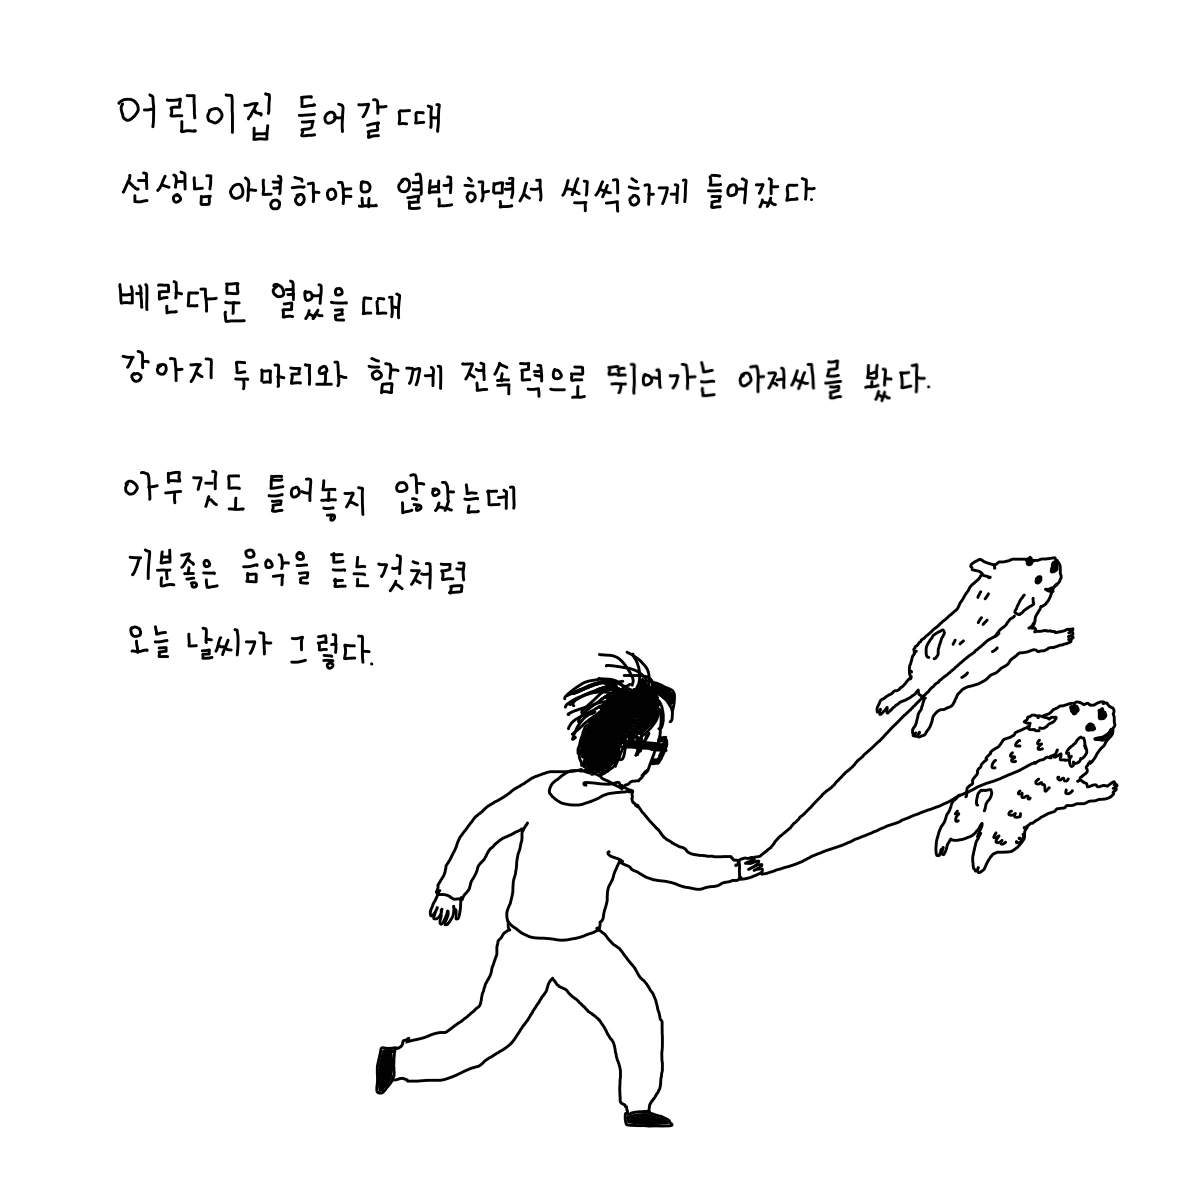 어린이집 들어갈때
선생님 아녕하야요 열번하면서 씩씩하게 들어갔다.
베란다문 열었을때
강아지 두마리와 함께 전속력으로 뛰어가는 아저씨를 봤다.
아무것도 틀어놓지 않았는데
기분좋은 음악을 듣는것처럼
오늘 날씨가 그렇다.